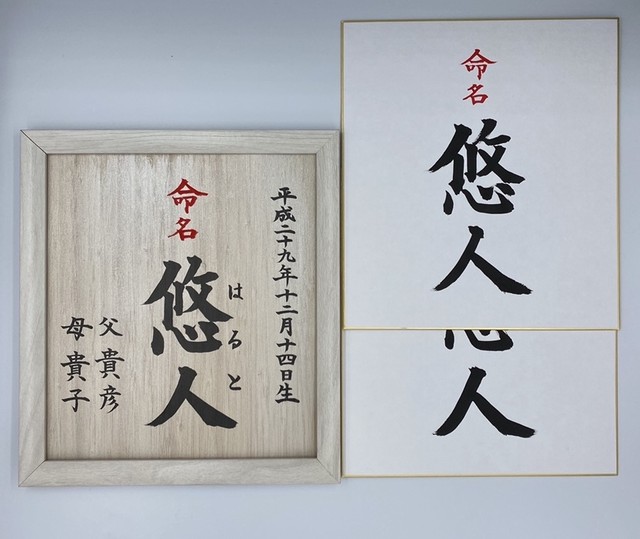 命名
悠人
はると
平成二十九年十二月十四日生
父 貴彦
母 貴子
命名
悠人
悠人